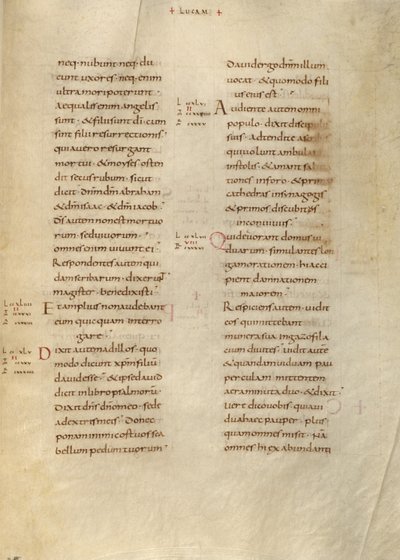 + LUCAM +
neq· nubunt neq· du
cunt uxores· neq· enim
ultra mori poterunt·
Aequales enim angelis
sunt· & filii sunt di· cum
sint filii resurrectionis·
qui a uero resurgant
mortui· & moyses osten
dit secus rubum· sicut
dicit· dnm dm abraham
& dm isaac· & dm iacob·
Ds autem non est mortuo
rum· sed uiuorum·
omnes enim uiuunt ei·
Respondentes autem qui
dam scribarum· dixerunt
magister· bene dixisti·
Et amplius non audebant
eum quicquam interro
gare·
Dixit autem ad illos· quo
modo dicunt xpm filiu
dauid esse· & ipse dauid
dicit in libro psalmoru
Dixit dns dno meo· sede
a dextris meis· Donec
ponam inimicos tuos sca
bellum pedum tuorum·
Dauid ergo dnm illum
uocat· & quomodo fili
us eius est·
Audiente autem omni
populo· dixit discipulis
suis· Adtendite a
qui uolunt ambula
in stolis· & amant
tiones in foro· & prim
cathedras in synagogis
& primos discubitus
in conuiuiis·
Qui deuorant domus ui
duarum· simulantes lon
gam orationem· hi acci
pient damnationem
maiorem·
Respiciens autem· uidit
eos qui mittebant
munera sua in gazofila
cium diuites· uidit aute
& quandam uiduam pau
perculam mittentem
aera minuta duo· & dixit·
uere dico uobis· quia ui
dua haec pauper· plus
quam omnes misit· Na
omnes hi ex abundanti